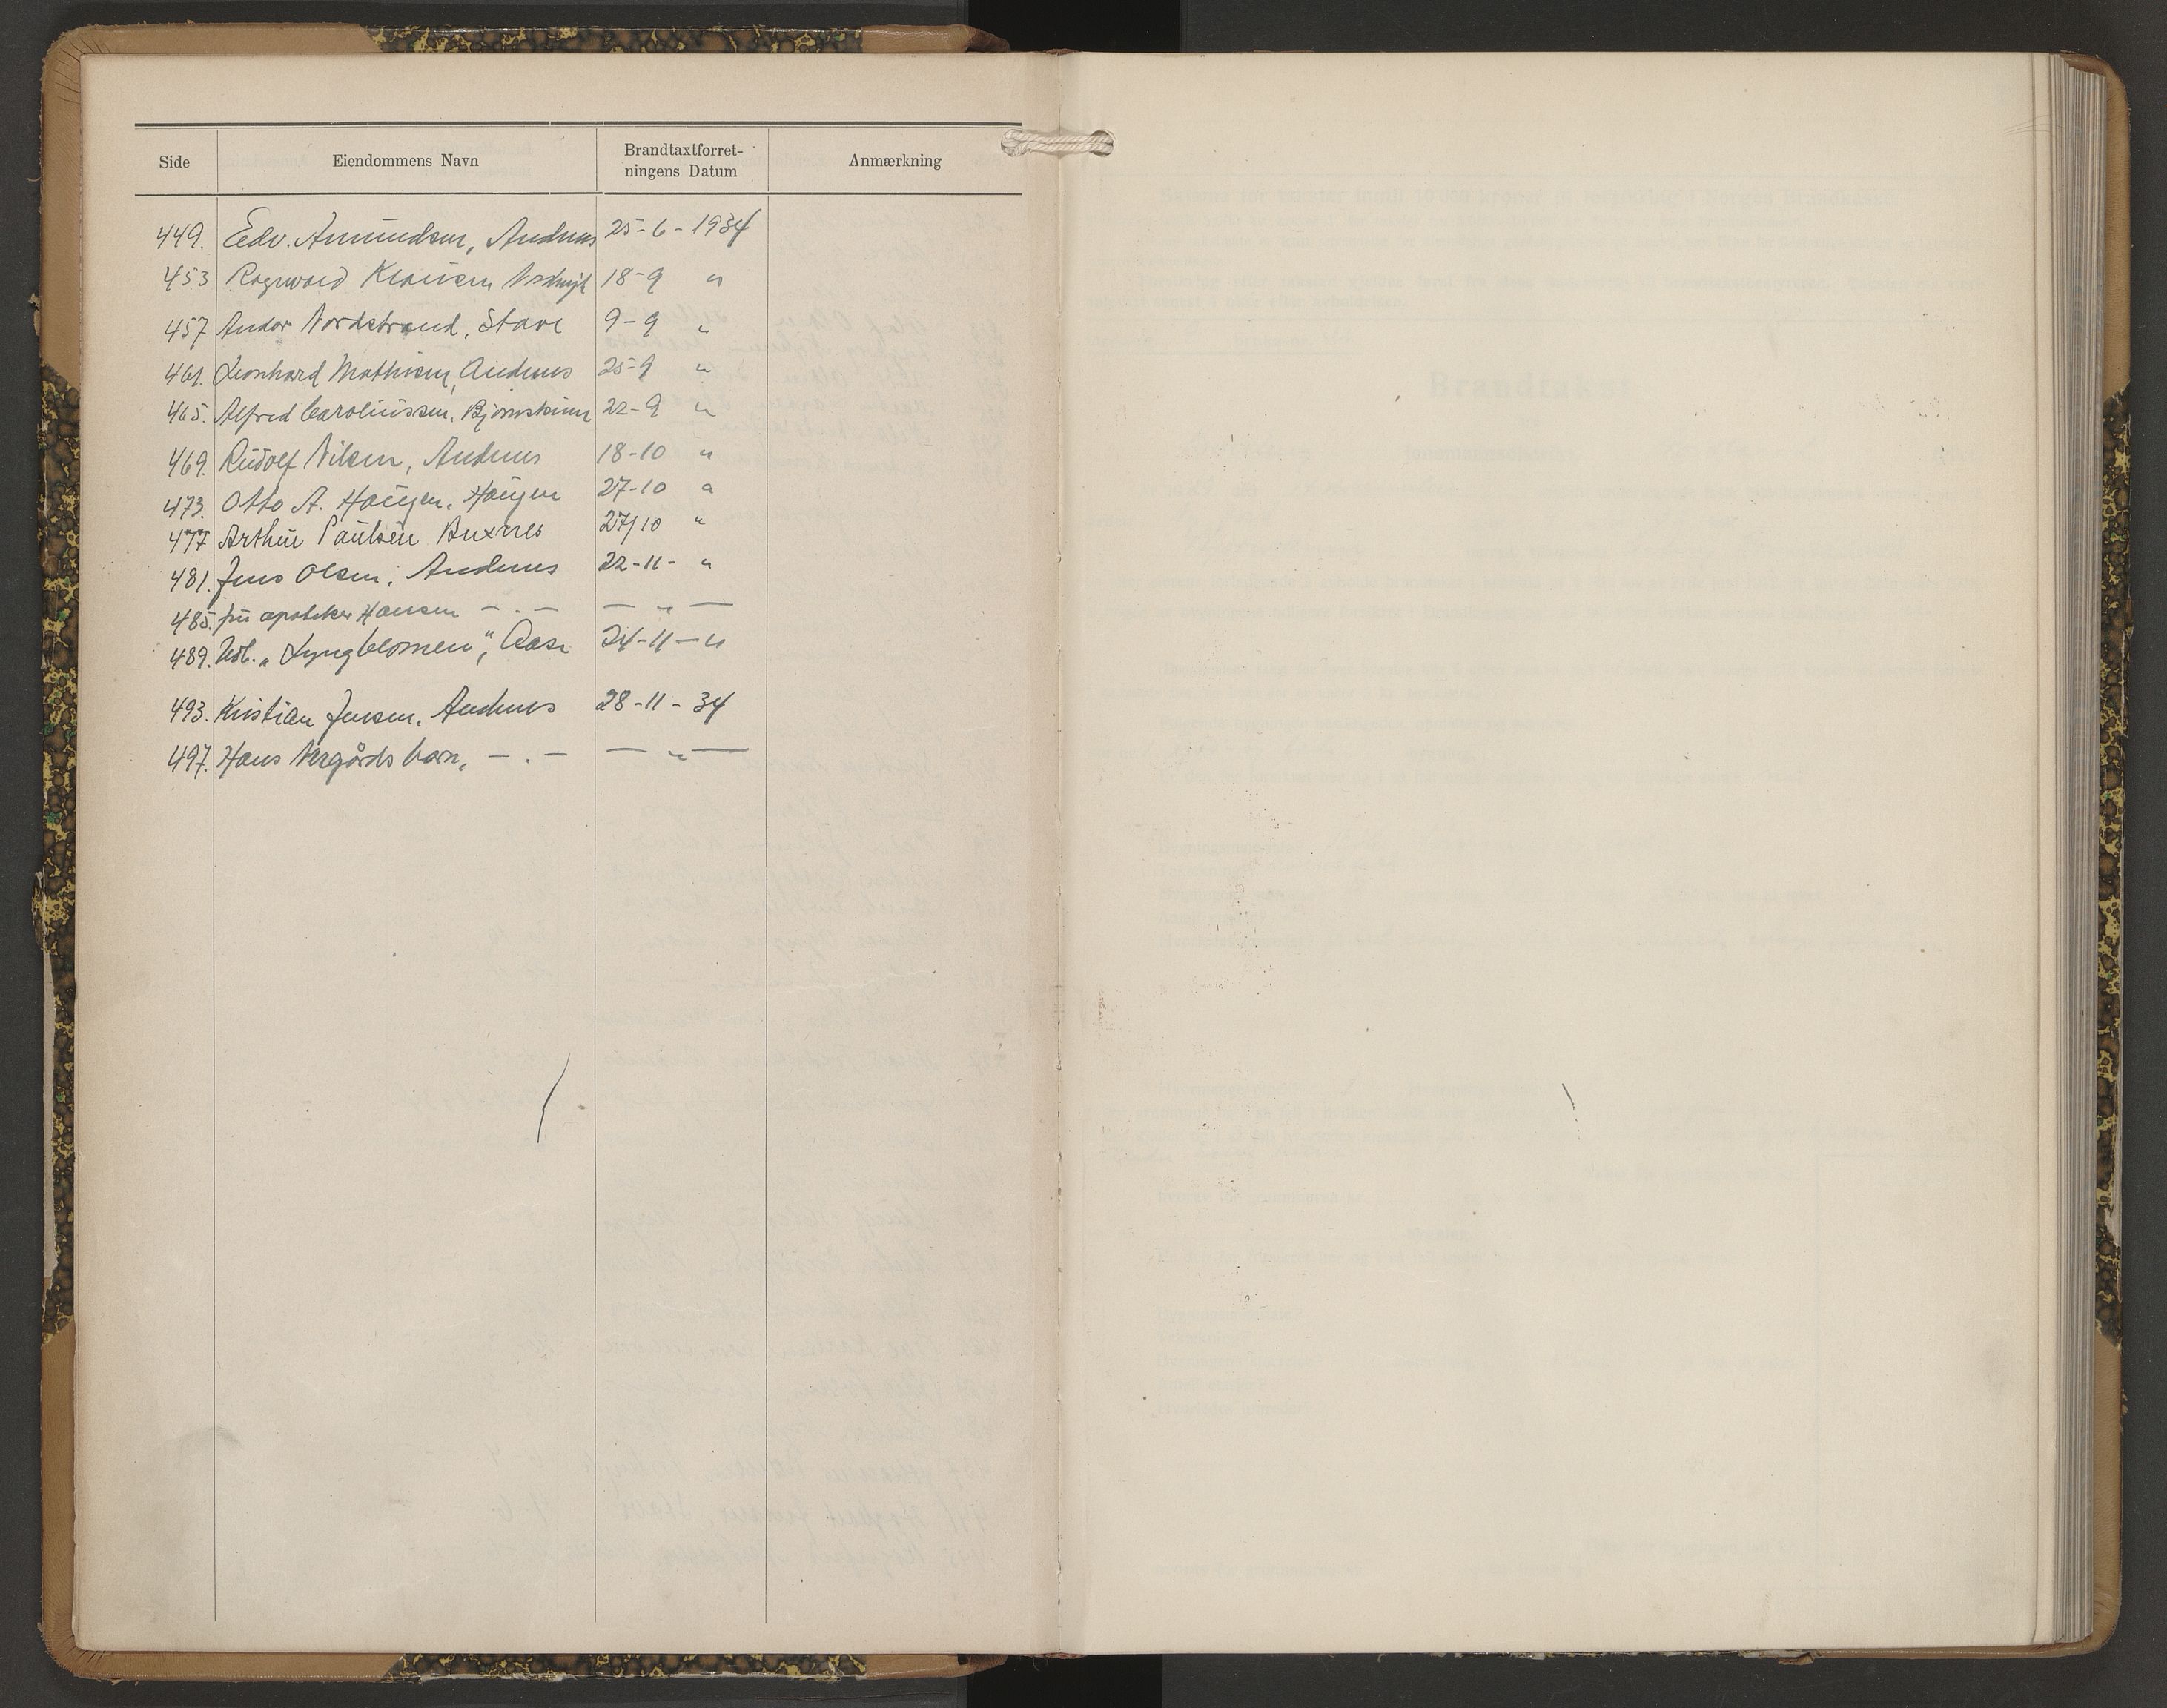 Side Eiendommens Navn Brandtaxtforret- Anmærkning
ningens Datum
449. Edv. Amundsen, Andenes 25-6-1934
453 Ragnvald Klausen 18-9 "
457 Andor Nordstrand, Stave 9-9 "
461. Leonhard Mathisen, Andenes 25-9 "
465. Alfred Caroliussen, Bjørnskinn 22-9 "
469. Rudolf Nilsen, Andenes 18-10 "
473. Otto A. Haugen, Haugen 27-10 "
477 Arthur Paulsen Buxnes 27/10 "
481. Jens Olsen, Andenes 22-11- "
485. fru apoteker Hansen — . — — " —
489. Udl. „Lyngblomen", Aase 24-11-"
493. Kristian Jensen, Andenes 28-11-34
497. Hans Nergårds barn, — . — — " —